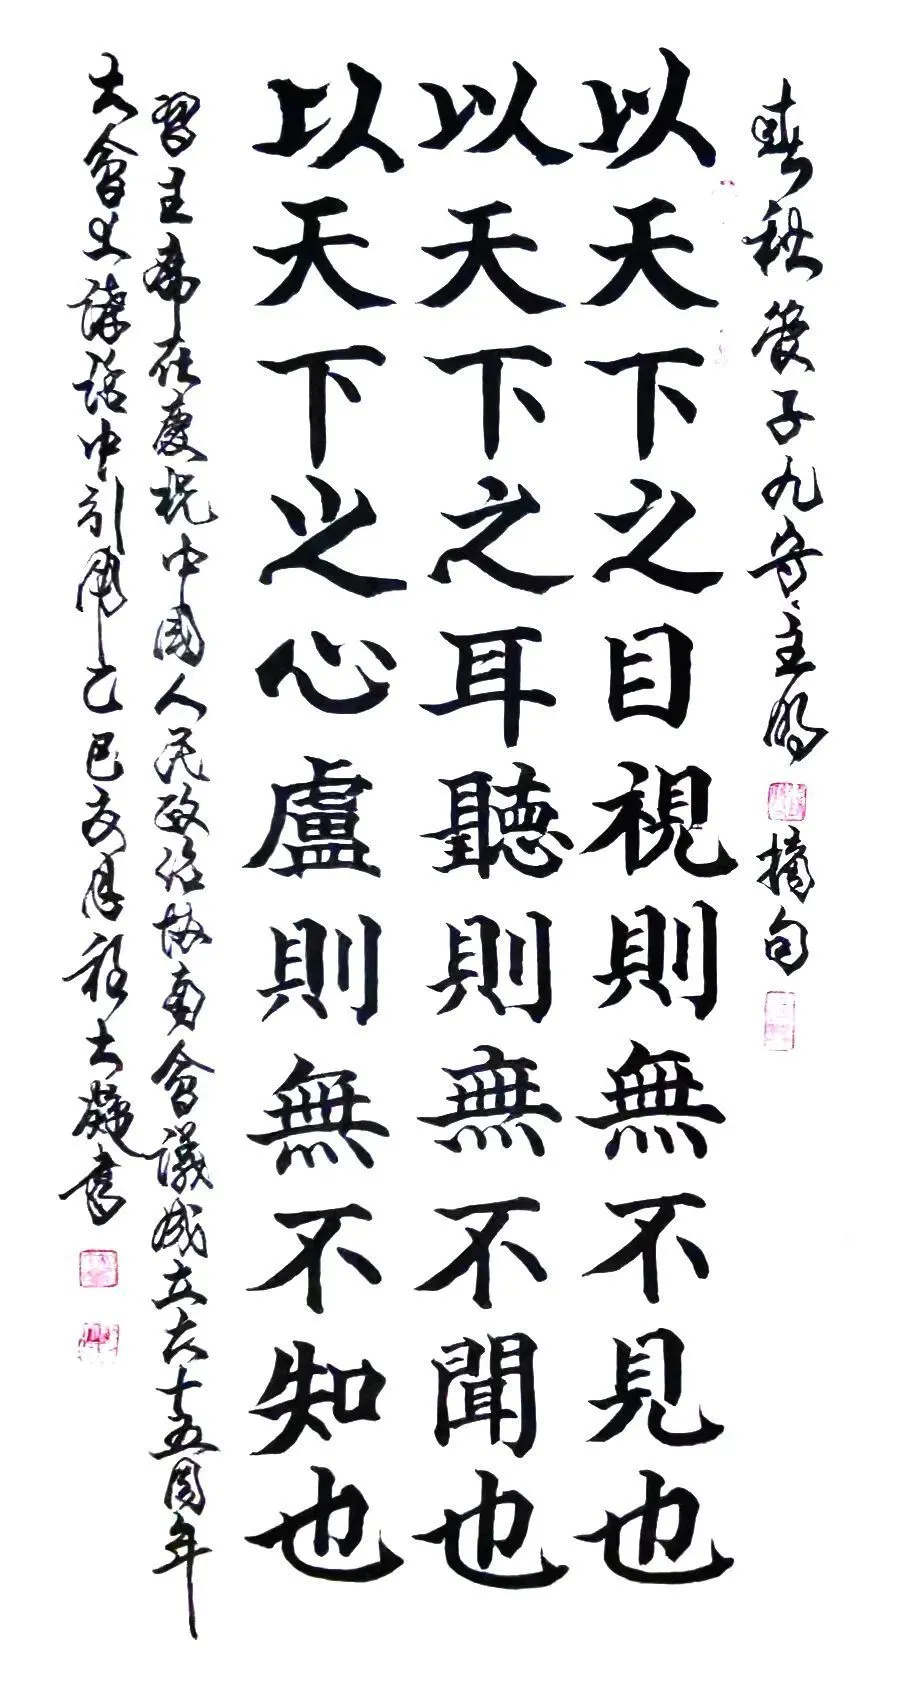 春秋管子九守主明 摘句
以天下之目視則無不見也
以天下之耳聽則無不聞也
以天下之心盧則無不知也
習主席在慶祝中國人民政治協商會議成立六十五周年
大會上講話中引用乙巳亥月書